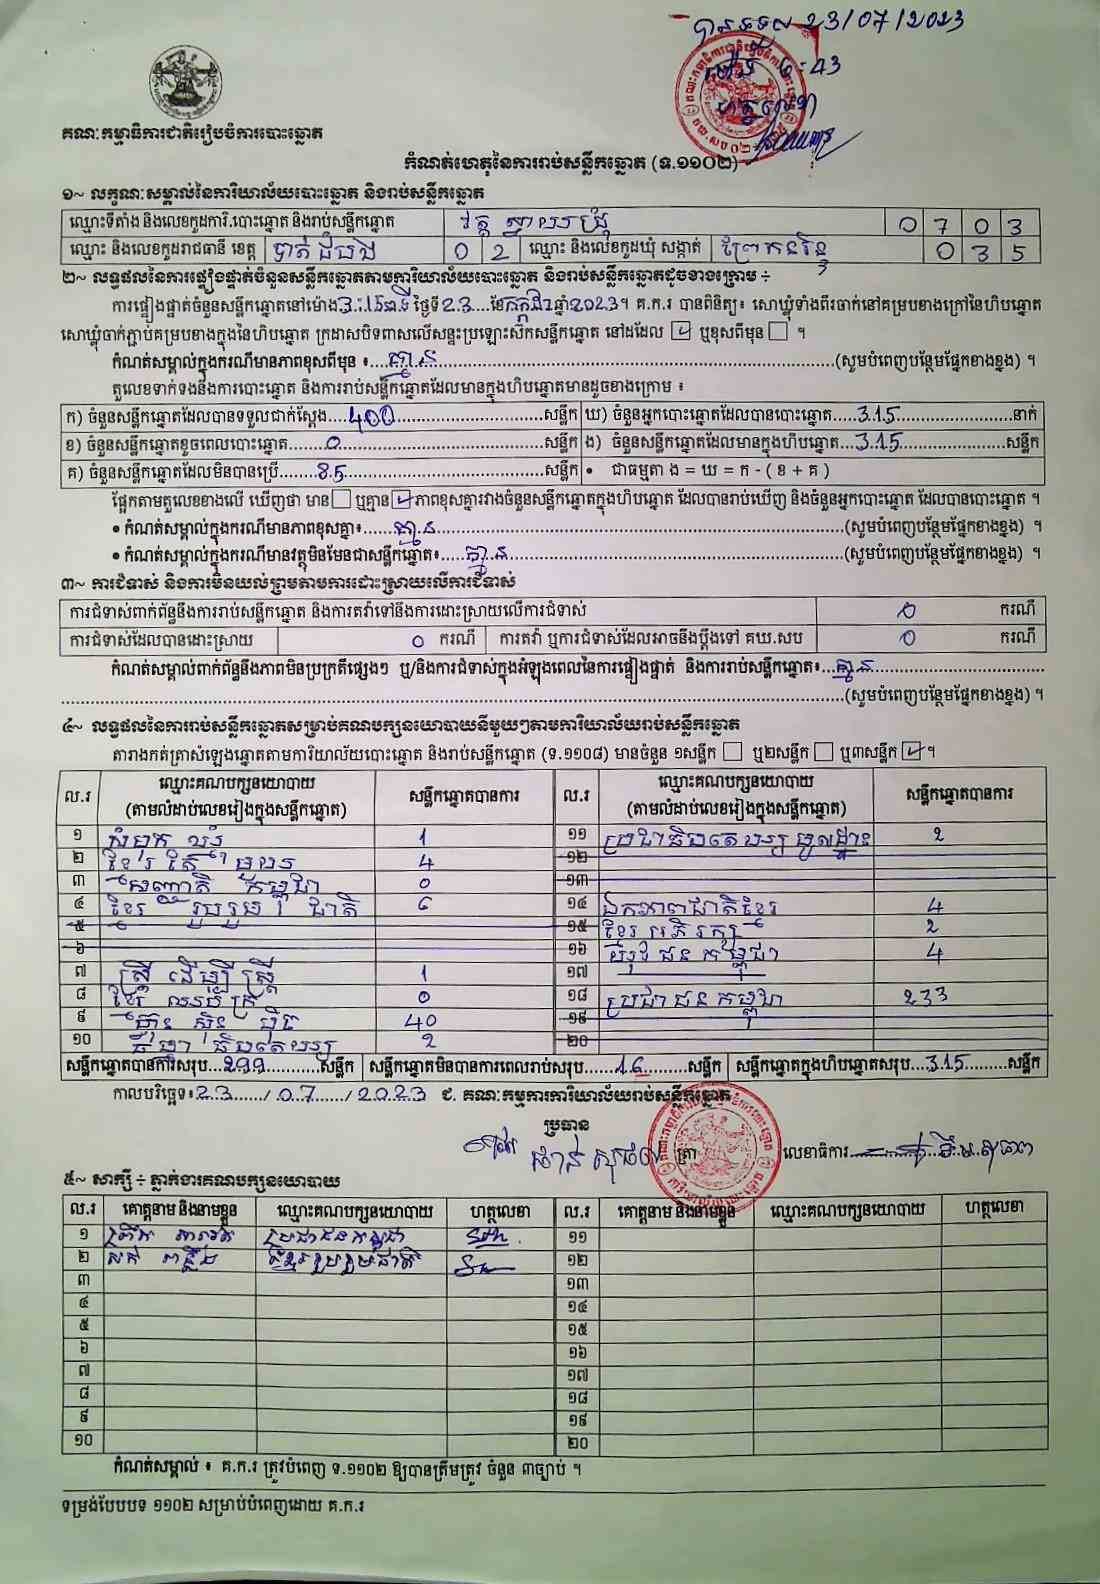 បានទទួល 23/07/2023
ម៉ោង 6:43
ហត្ថលេខា
គណៈកម្មាធិការជាតិរៀបចំការបោះឆ្នោត
កំណត់ហេតុនៃការរាប់សន្លឹកឆ្នោត (ទ.១១០២)
១~ លក្ខណៈសម្គាល់នៃការិយាល័យបោះឆ្នោត និងរាប់សន្លឹកឆ្នោត
ឈ្មោះទីតាំង និងលេខកូដការិ.បោះឆ្នោត និងរាប់សន្លឹកឆ្នោត វត្ត ស្វាយជ្រុំ 0 7 0 3
ឈ្មោះ និងលេខកូដរាជធានី ខេត្ត បាត់ដំបង 0 2 ឈ្មោះ និងលេខកូដឃុំ សង្កាត់ 0 3 5
២~ លទ្ធផលនៃការផ្ទៀងផ្ទាត់ចំនួនសន្លឹកឆ្នោតតាមការិយាល័យបោះឆ្នោត និងរាប់សន្លឹកឆ្នោតដូចខាងក្រោម ÷
ការផ្ទៀងផ្ទាត់ចំនួនសន្លឹកឆ្នោតនៅម៉ោង 3: នាទី ថ្ងៃទី 23 ខែ កក្កដា ឆ្នាំ 2023។ គ.ក.រ បានពិនិត្យ៖ សោឃ្លុំទាំងពីរចាក់នៅគម្របខាងក្រៅនៃហិបឆ្នោត
សោឃ្លុំចាក់ភ្ជាប់គម្របខាងក្នុងនៃហិបឆ្នោត ក្រដាសបិទពាសលើសន្ទះប្រឡោះស៊កសន្លឹកឆ្នោត នៅដដែល ☑ ឬខុសពីមុន ☐ ។
កំណត់សម្គាល់ក្នុងករណីមានភាពខុសពីមុន ៖ គ្មាន (សូមបំពេញបន្ថែមផ្នែកខាងខ្នង) ។
តួលេខទាក់ទងនឹងការបោះឆ្នោត និងការរាប់សន្លឹកឆ្នោតដែលមានក្នុងហិបឆ្នោតមានដូចខាងក្រោម ៖
ក) ចំនួនសន្លឹកឆ្នោតដែលបានទទួលជាក់ស្តែង 400 សន្លឹក ឃ) ចំនួនអ្នកបោះឆ្នោតដែលបានបោះឆ្នោត 315 នាក់
ខ) ចំនួនសន្លឹកឆ្នោតខូចពេលបោះឆ្នោត 0 សន្លឹក ង) ចំនួនសន្លឹកឆ្នោតដែលមានក្នុងហិបឆ្នោត 315 សន្លឹក
គ) ចំនួនសន្លឹកឆ្នោតដែលមិនបានប្រើ 85 សន្លឹក • ជាធម្មតា ង = ឃ = ក - ( ខ + គ )
ផ្អែកតាមតួលេខខាងលើ ឃើញថា មាន ☐ ឬគ្មាន ☑ ភាពខុសគ្នារវាងចំនួនសន្លឹកឆ្នោតក្នុងហិបឆ្នោត ដែលបានរាប់ឃើញ និងចំនួនអ្នកបោះឆ្នោត ដែលបានបោះឆ្នោត ។
• កំណត់សម្គាល់ក្នុងករណីមានភាពខុសគ្នា៖ គ្មាន (សូមបំពេញបន្ថែមផ្នែកខាងខ្នង) ។
• កំណត់សម្គាល់ក្នុងករណីមានវត្ថុមិនមែនជាសន្លឹកឆ្នោត៖ គ្មាន (សូមបំពេញបន្ថែមផ្នែកខាងខ្នង) ។
៣~ ការជំទាស់ និងការមិនយល់ព្រមតាមការដោះស្រាយលើការជំទាស់
ការជំទាស់ពាក់ព័ន្ធនឹងការរាប់សន្លឹកឆ្នោត និងការតវ៉ាទៅនឹងការដោះស្រាយលើការជំទាស់ 0 ករណី
ការជំទាស់ដែលបានដោះស្រាយ 0 ករណី ការតវ៉ា ឬការជំទាស់ដែលអាចនឹងប្តឹងទៅ គឃ.សប 0 ករណី
កំណត់សម្គាល់ពាក់ព័ន្ធនឹងភាពមិនប្រក្រតីផ្សេងៗ ឬ/និងការជំទាស់ក្នុងអំឡុងពេលនៃការផ្ទៀងផ្ទាត់ និងការរាប់សន្លឹកឆ្នោត៖ គ្មាន
(សូមបំពេញបន្ថែមផ្នែកខាងខ្នង) ។
៤~ លទ្ធផលនៃការរាប់សន្លឹកឆ្នោតសម្រាប់គណបក្សនយោបាយនីមួយៗតាមការិយាល័យរាប់សន្លឹកឆ្នោត
តារាងកត់ត្រាសំឡេងឆ្នោតតាមការិយាល័យបោះឆ្នោត និងរាប់សន្លឹកឆ្នោត (ទ.១១០៨) មានចំនួន ១សន្លឹក ☐ ឬ២សន្លឹក ☐ ឬ៣សន្លឹក ☑ ។
ល.រ ឈ្មោះគណបក្សនយោបាយ (តាមលំដាប់លេខរៀងក្នុងសន្លឹកឆ្នោត) សន្លឹកឆ្នោតបានការ ល.រ ឈ្មោះគណបក្សនយោបាយ (តាមលំដាប់លេខរៀងក្នុងសន្លឹកឆ្នោត) សន្លឹកឆ្នោតបានការ
១ សំបុកឃ្មុំ 1 ១១ ប្រជាធិបតេយ្យមូលដ្ឋាន 2
២ ខ្មែរតែមួយ 4 ១២
៣ សញ្ជាតិកម្ពុជា 0 ១៣
៤ ខ្មែររួបរួមជាតិ 6 ១៤ ឯកភាពជាតិខ្មែរ 4
៥ ១៥ ខ្មែរអភិរក្ស 2
៦ ១៦ យុវជនកម្ពុជា 4
៧ ស្ត្រីដើម្បីស្ត្រី 1 ១៧
៨ 0 ១៨ ប្រជាជនកម្ពុជា 233
៩ ហ្វ៊ុនស៊ិនប៉ិច 40 ១៩
១០ ធិបតេយ្យ 2 ២០
សន្លឹកឆ្នោតបានការសរុប 299 សន្លឹក សន្លឹកឆ្នោតមិនបានការពេលរាប់សរុប 16 សន្លឹក សន្លឹកឆ្នោតក្នុងហិបឆ្នោតសរុប 315 សន្លឹក
កាលបរិច្ឆេទ៖ 23 / 07 / 2023 ជ. គណៈកម្មការការិយាល័យរាប់សន្លឹកឆ្នោត
ប្រធាន
ត្រា លេខាធិការ
៥~ សាក្សី ÷ ភ្នាក់ងារគណបក្សនយោបាយ
ល.រ គោត្តនាម និងនាមខ្លួន ឈ្មោះគណបក្សនយោបាយ ហត្ថលេខា ល.រ គោត្តនាម និងនាមខ្លួន ឈ្មោះគណបក្សនយោបាយ ហត្ថលេខា
១ ប្រជាជនកម្ពុជា ១១
២ ខ្មែររួបរួមជាតិ ១២
៣ ១៣
៤ ១៤
៥ ១៥
៦ ១៦
៧ ១៧
៨ ១៨
៩ ១៩
១០ ២០
កំណត់សម្គាល់ ៖ គ.ក.រ ត្រូវបំពេញ ទ.១១០២ ឱ្យបានត្រឹមត្រូវ ចំនួន ៣ច្បាប់ ។
ទម្រង់បែបបទ ១១០២ សម្រាប់បំពេញដោយ គ.ក.រ